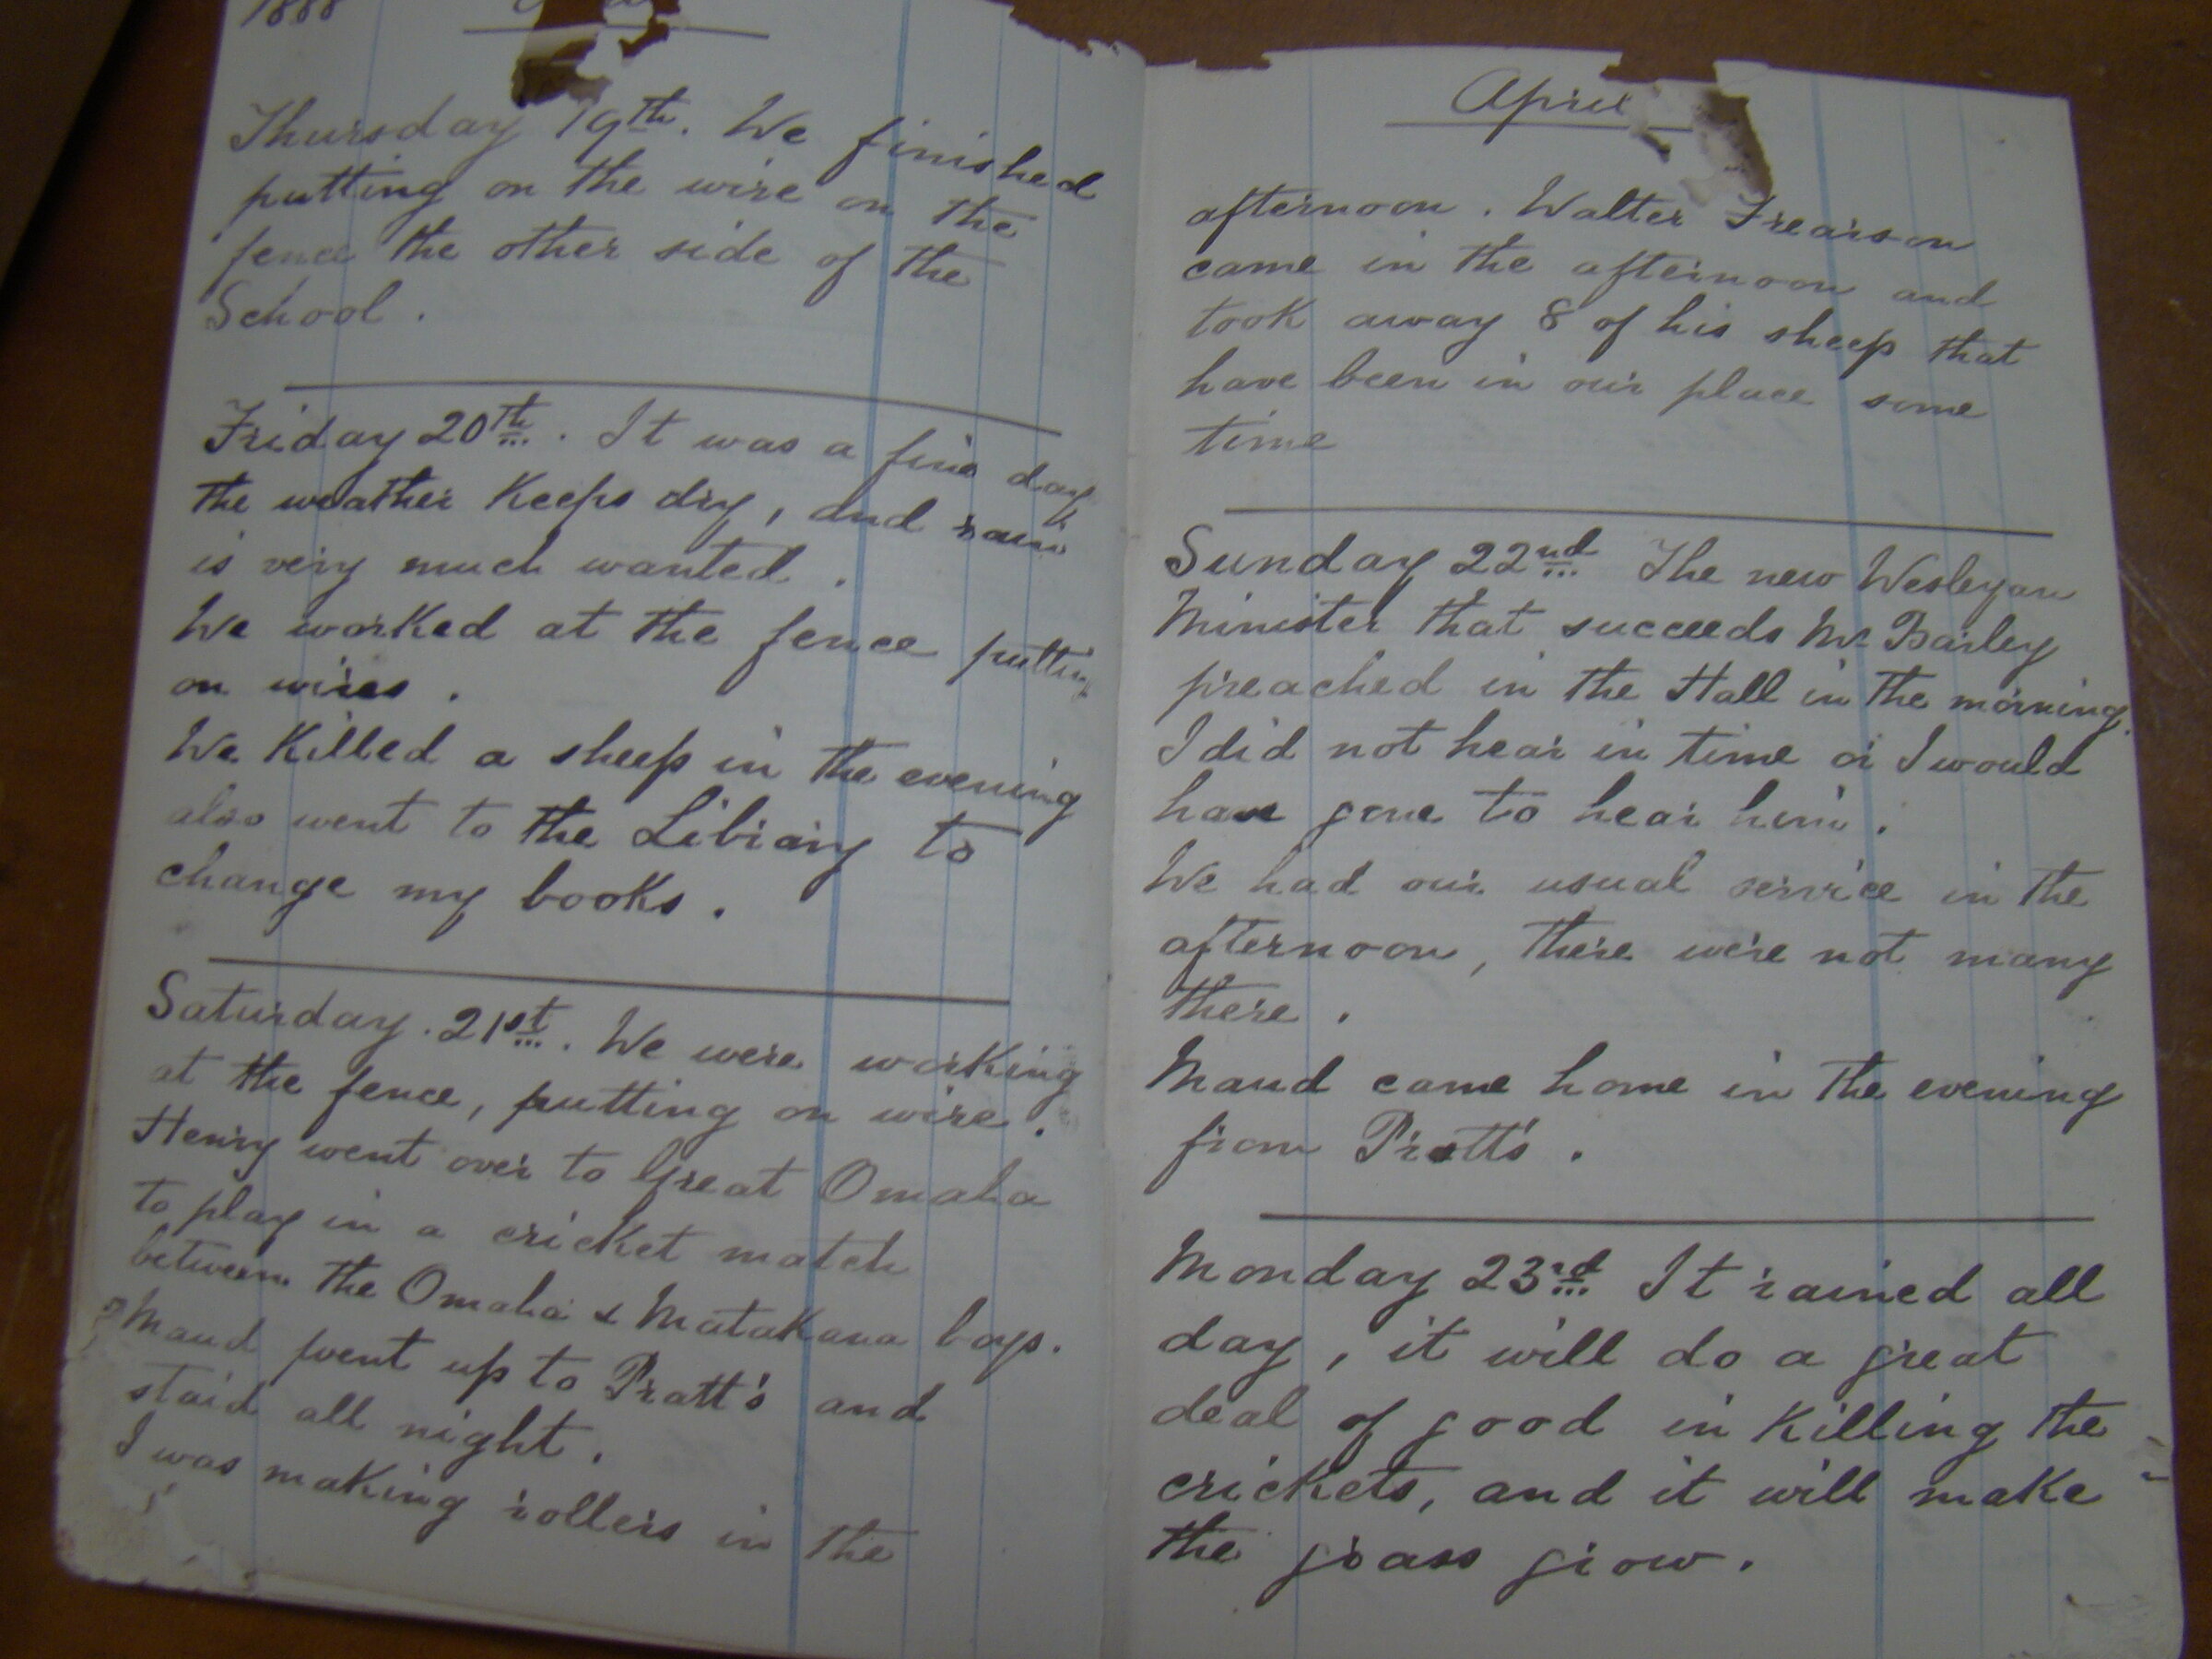 1888
Thursday 19th. We finished
putting on the wire on the
fence the other side of the
School.
Friday 20th. It was a fine day
the weather keeps dry, and rain
is very much wanted.
We worked at the fence putting
on wires.
We killed a sheep in the evening
also went to the Library to
change my books.
Saturday. 21st. We were working
at the fence, putting on wire.
Henry went over to Great Omaha
to play in a cricket match
between the Omaha & Matakana boys.
Maud went up to Pratt's and
staid all night.
I was making rollers in the
April
afternoon. Walter Frearson
came in the afternoon and
took away 8 of his sheep that
have been in our place some
time
Sunday 22nd The new Wesleyan
Minister that succeeds Mr
preached in the Hall in the morning.
I did not hear in time or I would
have gone to hear him.
We had our usual service in the
afternoon, there were not many
there.
Maud came home in the evening
from Pratt's.
Monday 23rd It rained all
day, it will do a great
deal of good in killing the
crickets, and it will make
the grass grow.